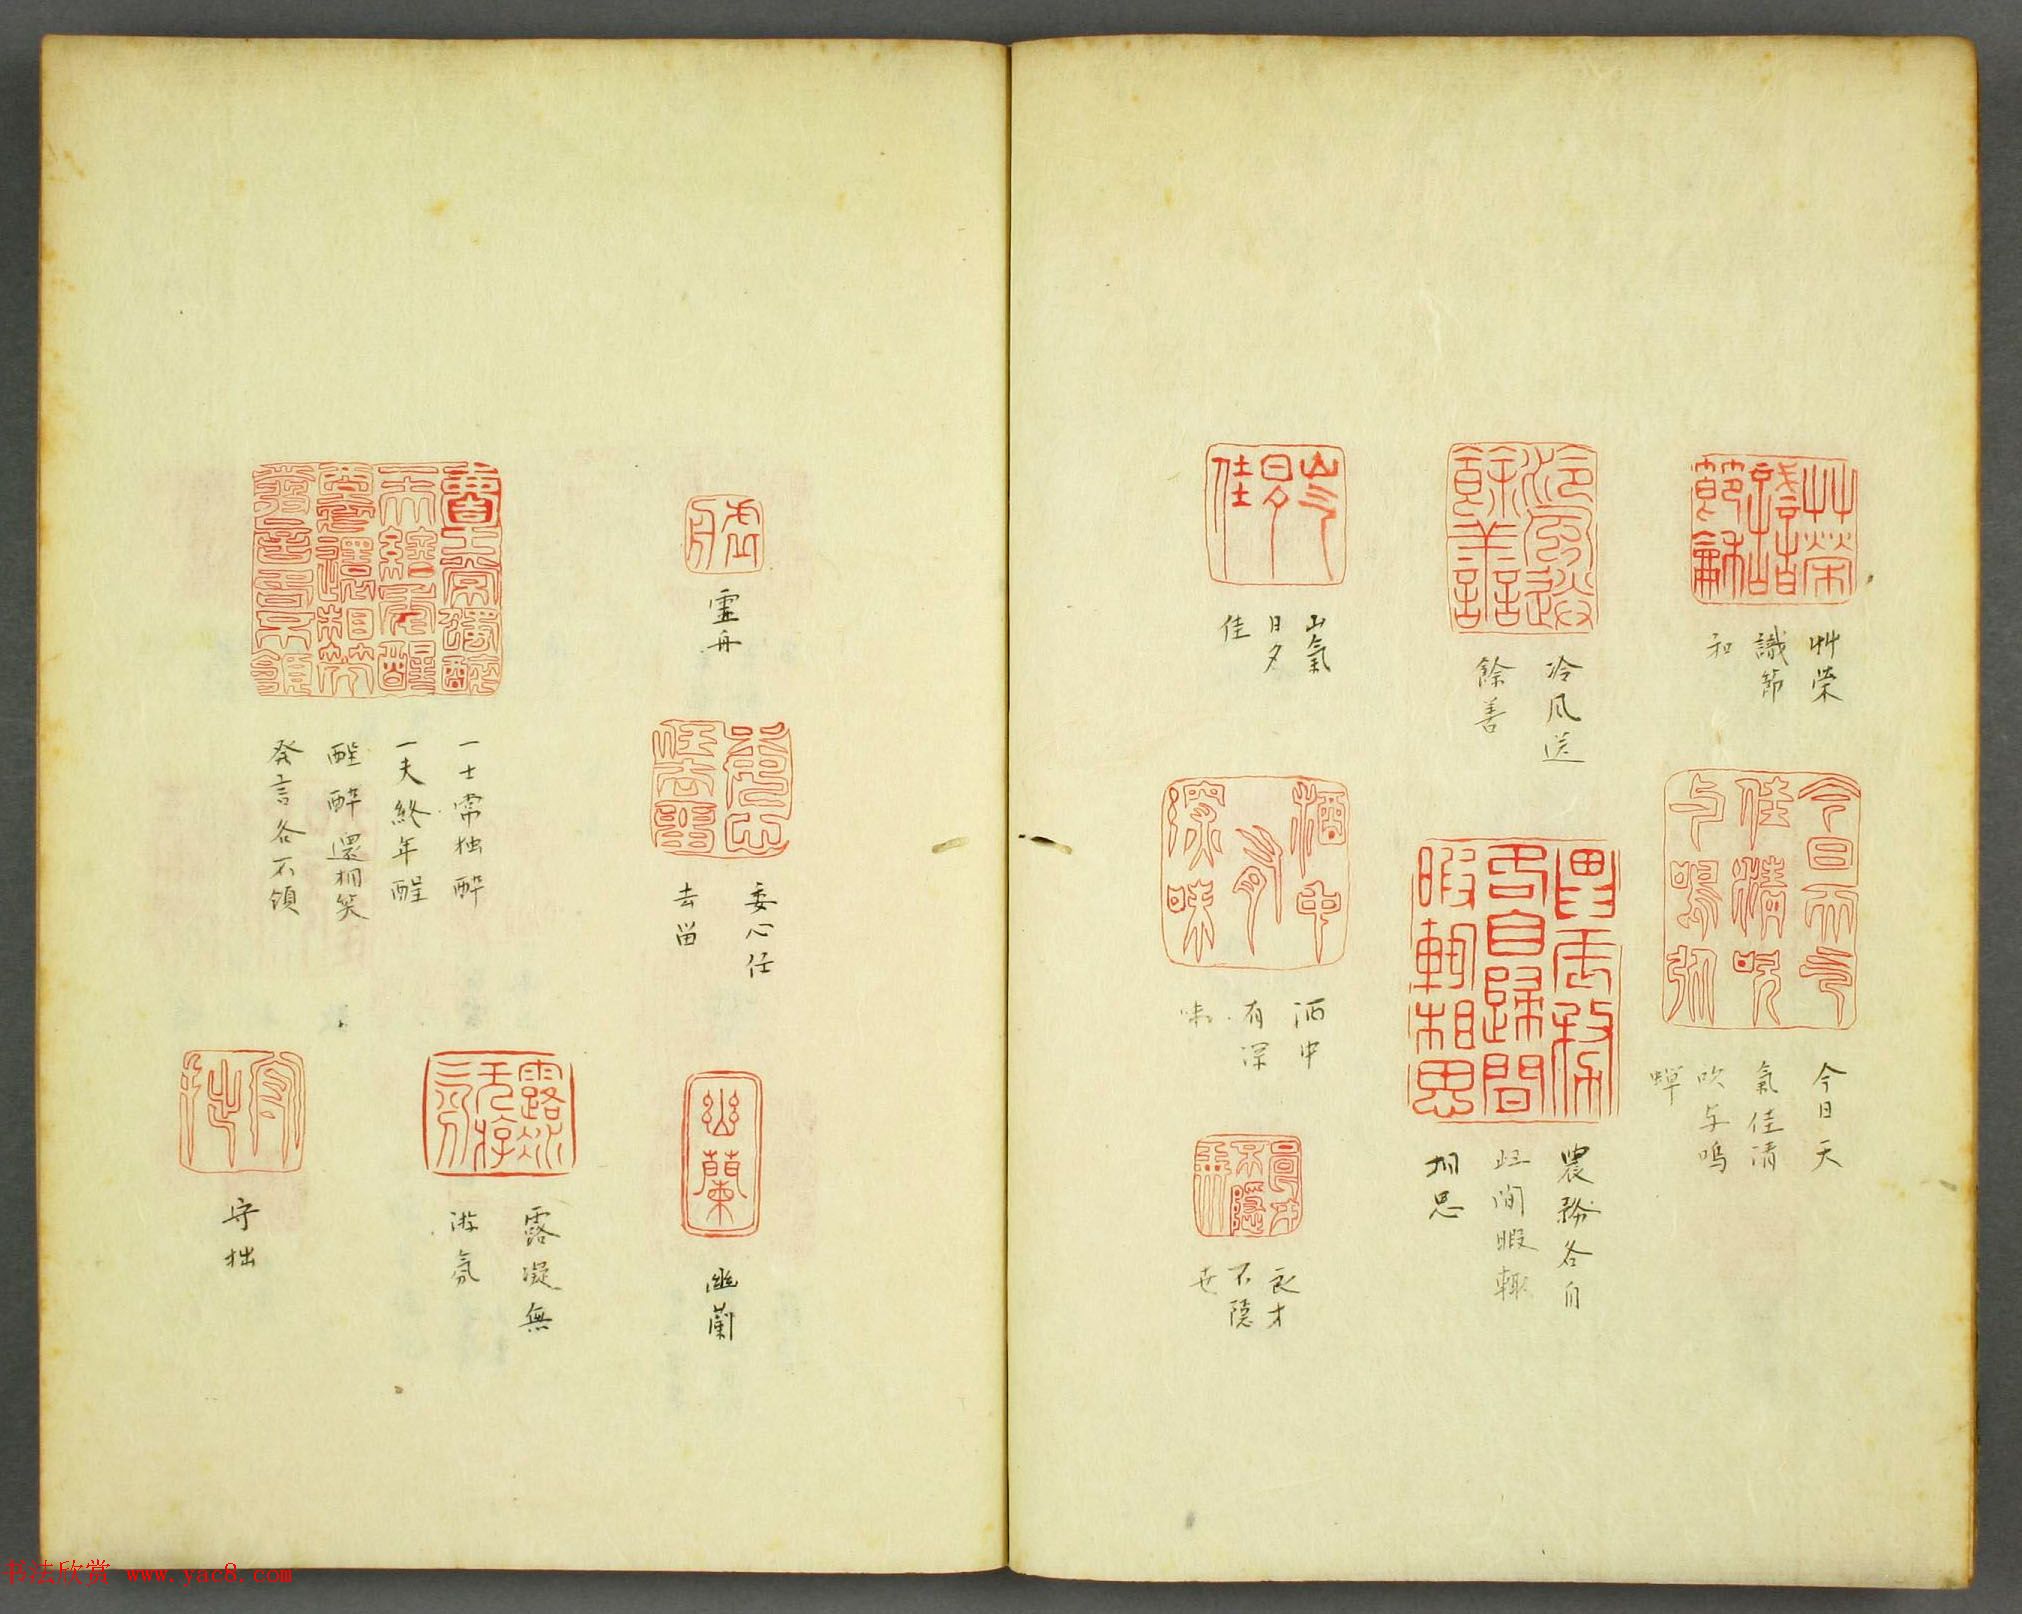 艸榮
識節
和
冷風送
餘善
山氣
日夕
佳
今日天
氣佳清
吹与鳴
蟬
農務各自
歸間暇輒
相思
酒中
有深
味
良才
不隱
世
虛舟
委心任
去留
幽蘭
一士常独醉
一夫終年醒
醒醉還相笑
發言各不領
露凝無
游氛
守拙
书法欣赏 www.yac8.com